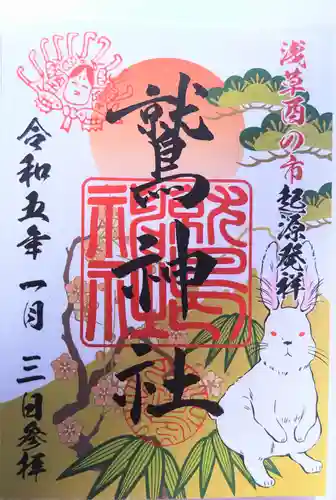 浅草酉の市
起源発祥
鷲神社
鷲神社
令和五年一月三日参拝